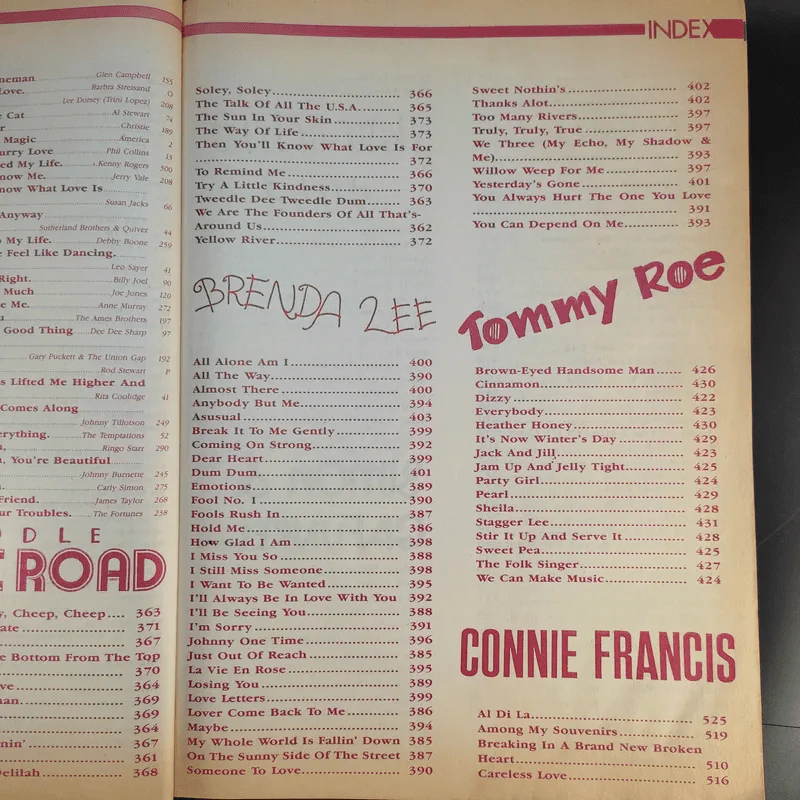 INDEX
neman Glen Campbell 155
Love. Barbra Streisand O
Lee Dorsey (Trini Lopez) 208
e Cat Al Stewart 74
r Christie 189
Magic America 2
urry Love Phil Collins 13
ed My Life. Kenny Rogers 500
now Me. Jerry Vale 208
now What Love Is
Susan Jacks 66
Anyway
Sutherland Brothers & Quiver 44
o My Life. Debby Boone 259
e Feel Like Dancing.
Leo Sayer 41
Right. Billy Joel 90
Much Joe Jones 120
e Me. Anne Murray 272
a The Ames Brothers 197
Good Thing Dee Dee Sharp 97
Gary Puckett & The Union Gap 192
Rod Stewart P
s Lifted Me Higher And
Rita Coolidge 41
Comes Along
Johnny Tillotson 249
erything. The Temptations 52
n, Ringo Starr 290
n, You're Beautiful
Johnny Burnette 245
n. Carly Simon 275
Friend. James Taylor 268
ur Troubles. The Fortunes 238
ODLE
E ROAD
y, Cheep, Cheep.... 363
ate 371
367
e Bottom From The Top
370
ve 364
nan. 369
369
364
nin' 367
361
Delilah 368
Soley, Soley 366
The Talk Of All The U.S.A. 365
The Sun In Your Skin 373
The Way Of Life 373
Then You'll Know What Love Is For
372
To Remind Me 366
Try A Little Kindness 370
Tweedle Dee Tweedle Dum 363
We Are The Founders Of All That's-
Around Us 362
Yellow River 372
BRENDA LEE
All Alone Am I 400
All The Way 390
Almost There 400
Anybody But Me 394
Asusual 403
Break It To Me Gently 399
Coming On Strong 392
Dear Heart 399
Dum Dum 401
Emotions 389
Fool No. 1 390
Fools Rush In 387
Hold Me 386
How Glad I Am 398
I Miss You So 388
I Still Miss Someone 398
I Want To Be Wanted 395
I'll Always Be In Love With You 392
I'll Be Seeing You 388
I'm Sorry 391
Johnny One Time 396
Just Out Of Reach 385
La Vie En Rose 395
Losing You 389
Love Letters 399
Lover Come Back To Me 386
Maybe 394
My Whole World Is Fallin' Down 385
On The Sunny Side Of The Street 387
Someone To Love 390
Sweet Nothin's 402
Thanks Alot 402
Too Many Rivers 397
Truly, Truly, True 397
We Three (My Echo, My Shadow &
Me) 393
Willow Weep For Me 397
Yesterday's Gone 401
You Always Hurt The One You Love
391
You Can Depend On Me 393
Tommy Roe
Brown-Eyed Handsome Man 426
Cinnamon 430
Dizzy 422
Everybody 423
Heather Honey 430
It's Now Winter's Day 429
Jack And Jill 423
Jam Up And Jelly Tight 425
Party Girl 424
Pearl 429
Sheila 428
Stagger Lee 431
Stir It Up And Serve It 428
Sweet Pea 425
The Folk Singer 427
We Can Make Music 424
CONNIE FRANCIS
Al Di La 525
Among My Souvenirs 519
Breaking In A Brand New Broken
Heart 510
Careless Love 516